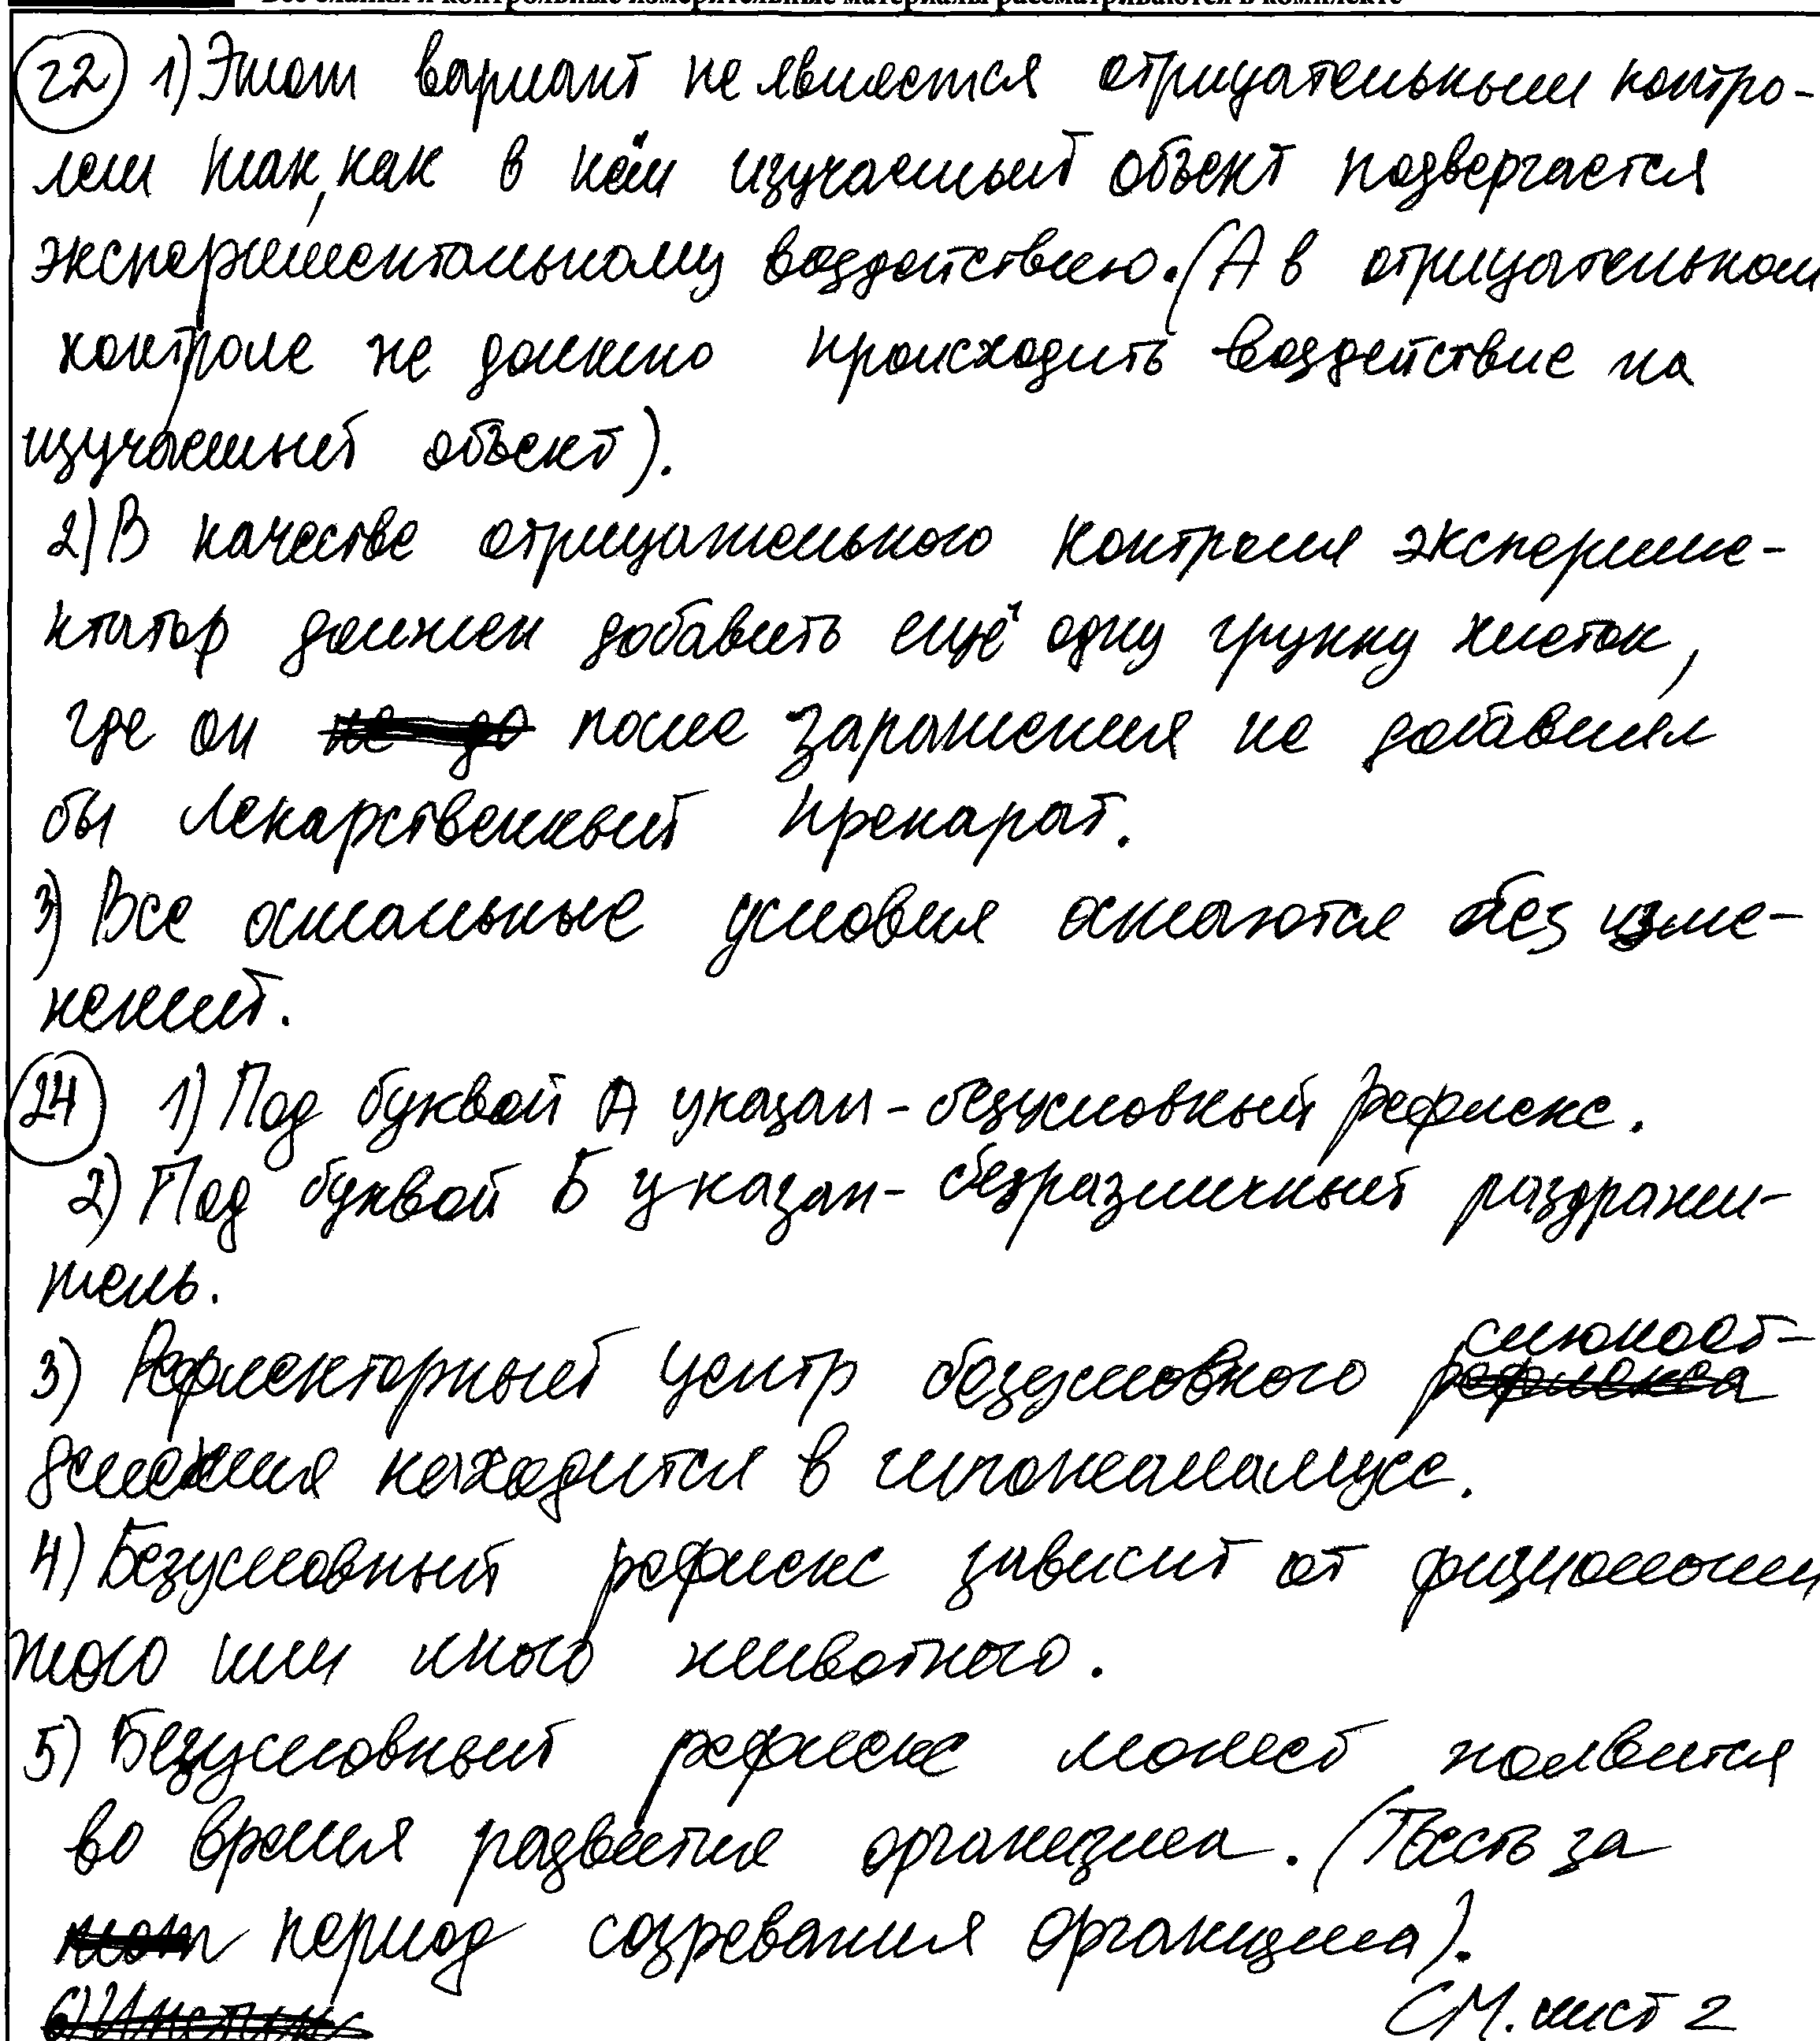 Все бланки и контрольные измерительные материалы рассматриваются в комплекте
22 1) Этот вариант не является отрицательным контро-
лем так, как в нём изучаемый объект подвергается
экспериментальному воздействию. (А в отрицательном
контроле не должно происходить воздействие на
изучаемый объект).
2) В качестве отрицательного контроля экспериме-
нтатор должен добавить ещё одну группу клеток,
где он не до после заражения не добавлял
бы лекарственный препарат.
3) Все остальные условия остаются без изме-
нений.
24 1) Под буквой А указан - безусловный рефлекс.
2) Под буквой Б указан - безразличный раздражи-
тель.
3) Рефлекторный центр безусловного рефлекса слюноот-
деления находится в гипоталамусе.
4) Безусловный рефлекс зависит от физиологии
того или иного животного.
5) Безусловный рефлекс может появится
во время развития организма. (Тоесть за
тот период созревания организма).
6) Инстинк
СМ. лист 2